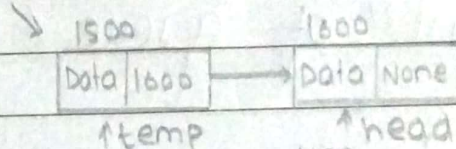 1500 1600
Data 1600 Data None
↑temp ↑head